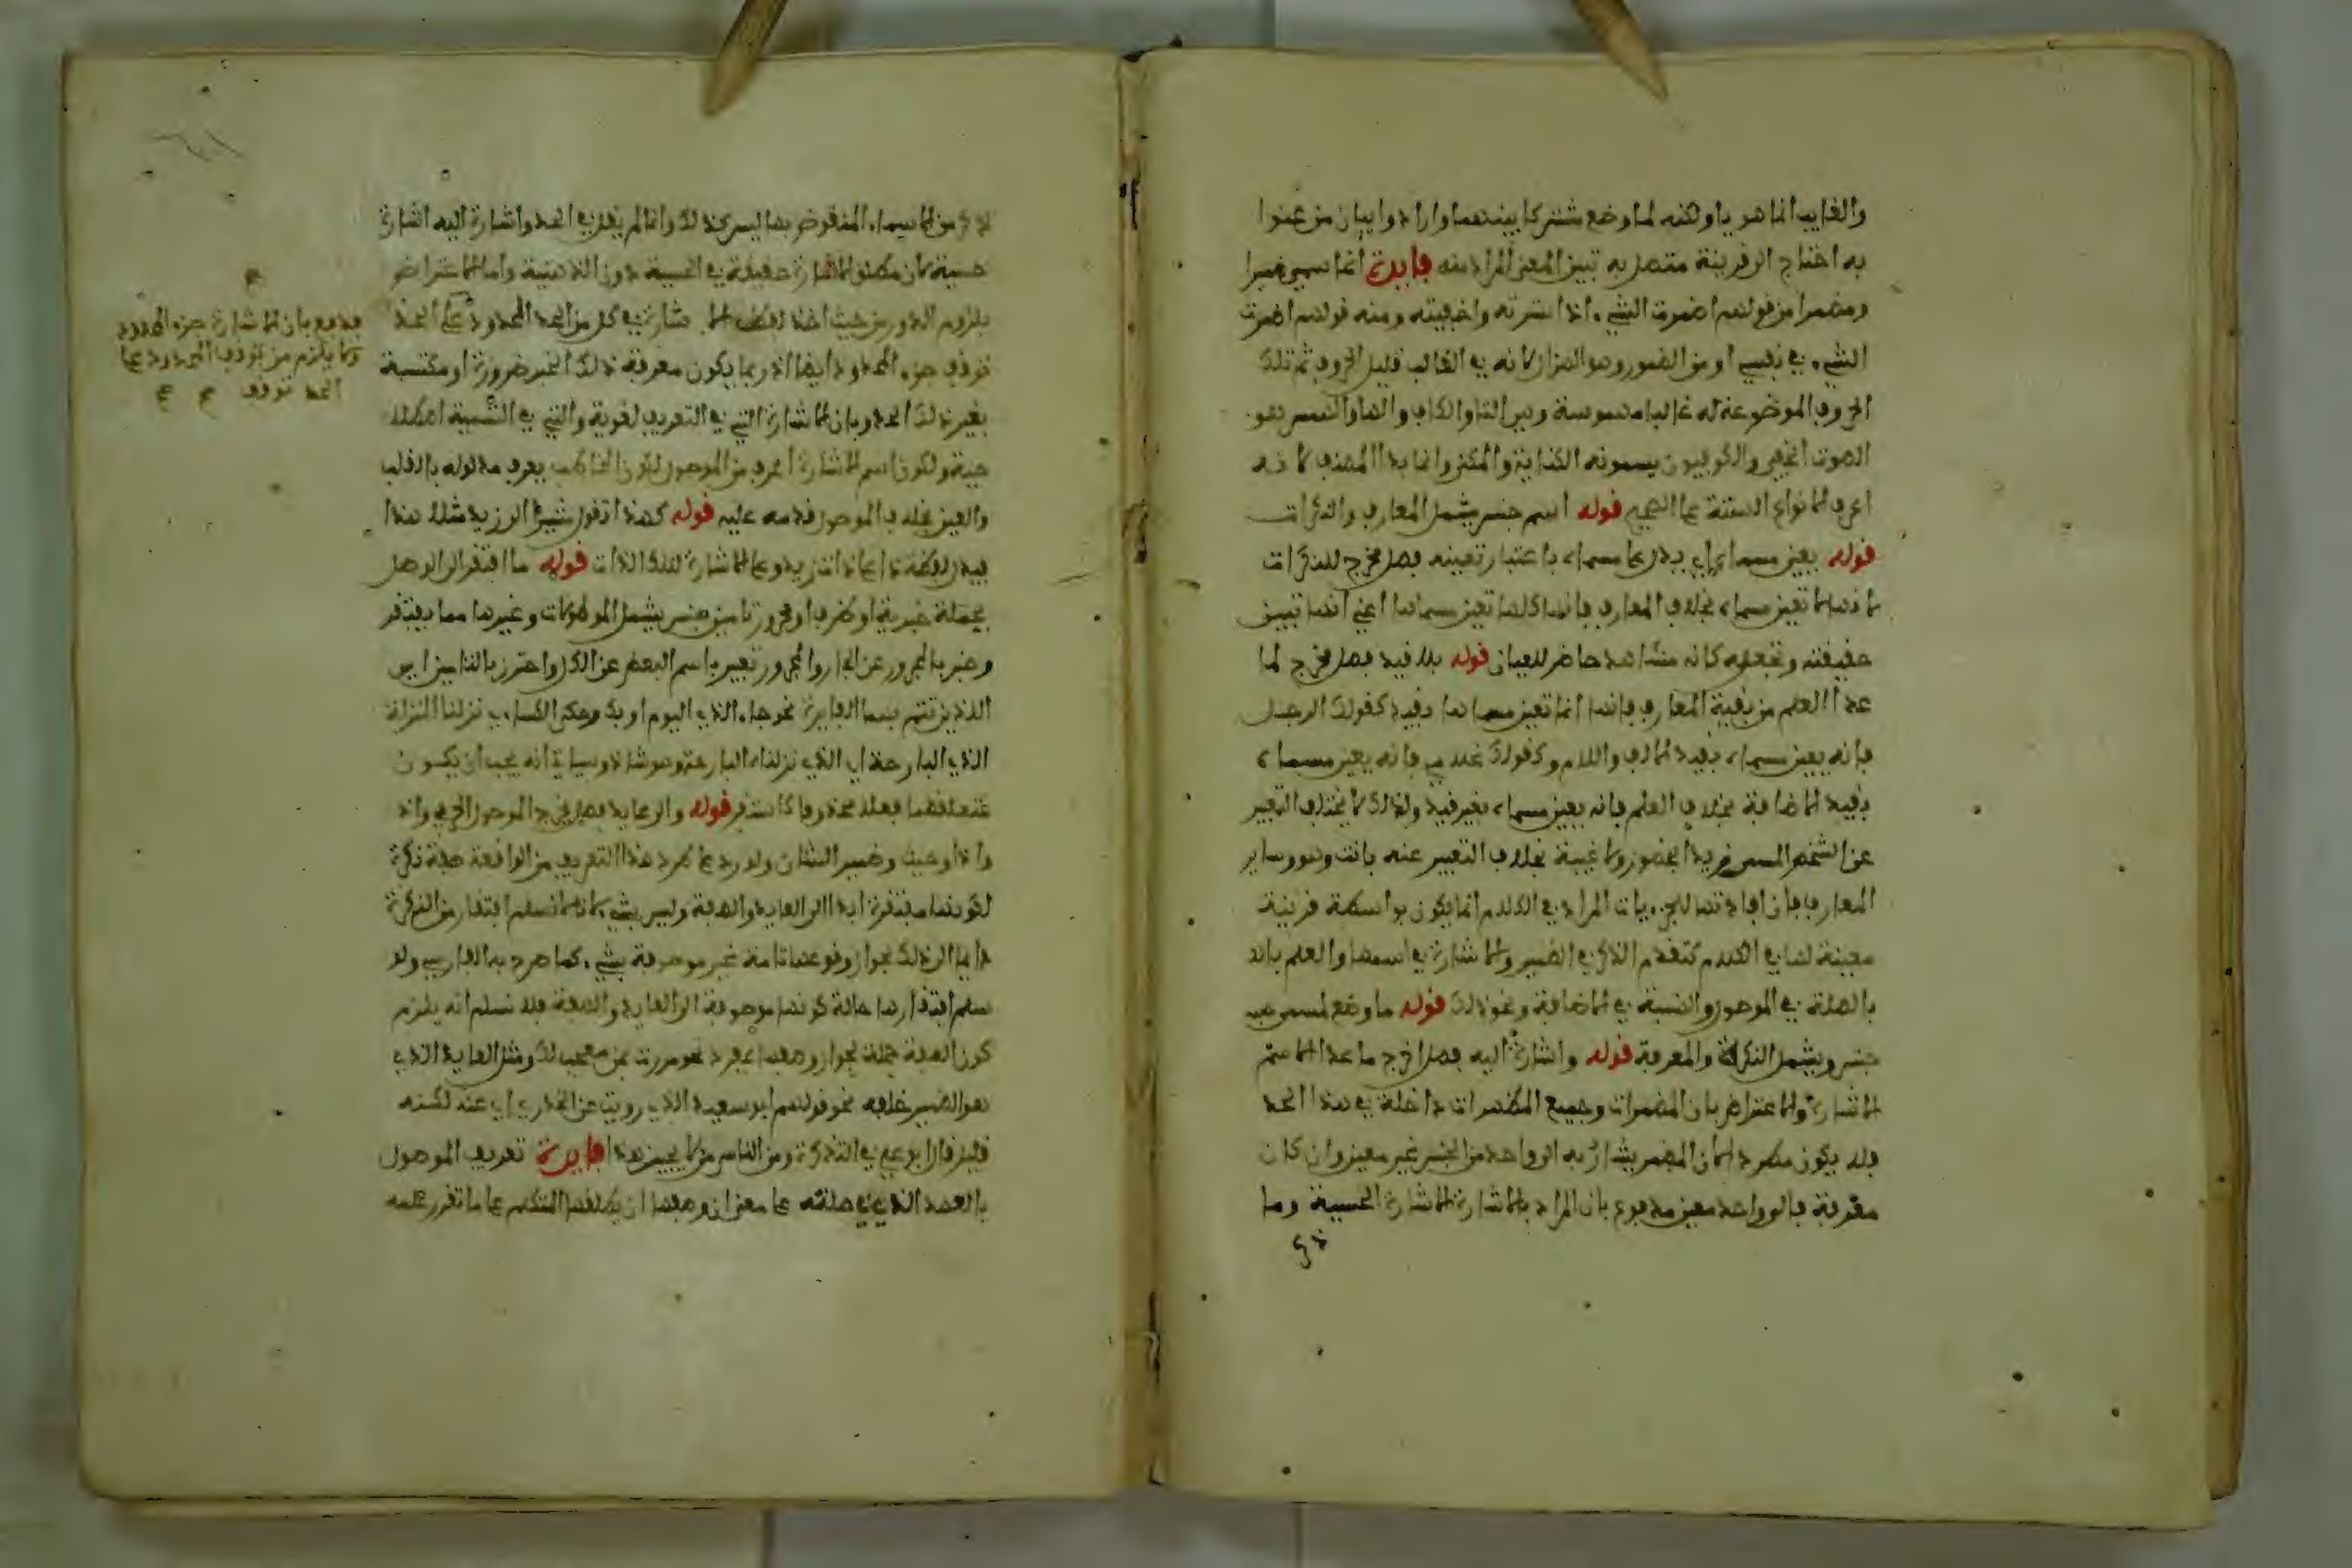 والغايب انما هو يا ولكنه لما وضع مشتركا بينهما وارادوا بيان من عنوا
به احتاج الى قرينة متصل به تبين المعنى المراد منه فايدة انما سمي ضميرا
ومضمرا من قولهم اضمرت الشيء اذا سترته واخفيته ومنه قولهم اضمرت
الشيء في نفسي او من الضمور وهو الهزال لانه في الغالب قليل الحروف ثم تلك
الحروف الموضوعة له غالبا مهموسة وهي التا والكاف والها والهمس هو
الصوت الخفي والكوفيون يسمونه الكناية والمكنى وانما بدا المصنف لانه
اعرف الانواع الستة على الصحيح قوله اسم جنس يشمل المعارف والنكرات
قوله يعين مسماه اي يدل على مسماه باعتبار تعيينه فصل مخرج للنكرات
لانها لا تعين مسماه بخلاف المعارف فانها كلها تعين مسماها اعني انها تبين
حقيقته وتجعله كانه مشاهد حاضر للعيان قوله بلا قيد فصل مخرج لما
عدا العلم من بقية المعارف فانها انما تعين مسماها بقيد كقولك الرجل
فانه يعين مسماه بقيد الالف واللام وكقولك غلامي فانه يعين مسماه
بقيد الاضافة بخلاف العلم فانه يعين مسماه بغير قيد ولذلك لا يختلف التعبير
عن الشخص المسمى زيدا بحضور ولا غيبة بخلاف التعبير عنه بانت وهو وساير
المعارف فان افادتها للجزييات المراد في الكلام انما يكون بواسطة قرينة
معينة لها في الكلام كتقدم الذكر في الضمير والاشارة في اسمها والعلم بال
بالصلة في الموصول والنسبة في الاضافة ونحو ذلك قوله ما وضع لمسمى
جنس ويشمل النكرة والمعرفة قوله واشارة اليه فصل اخرج ما عدا اسم
الاشارة والاعتراض بان المضمرات وجميع المظهرات داخلة في هذا الحد
فلا يكون مطردا لان المضمر يشار به الى واحد من الجنس غير معين وان كان
معرفة فالى واحد معين مدفوع بان المراد بالاشارة الاشارة الحسية وما
ذكر
ذكر من الاسماء المنقوض بها ليس كذلك وانما لم يقل في الحد واشارة اليه اشارة
حسية لان مطلق الاشارة حقيقة في الحسية دون الذهنية واما الاعتراض
بلزوم الدور من حيث اخذ لفظ الاشارة في كل من الحد المحدود على الحد
توقف جزء المحدود ايضا اذ ربما يكون معرفة ذلك الغير ضرورة او مكتسبة
بغير ذلك الحد وبان الاشارة التي في التعريف لغوية والتي في التسمية اصطلا
حية ولكون اسم الاشارة اعرف من الموصول لكون المخاطب يعرف مدلوله بالقلب
والعين بخلاف الموصول قدمه عليه قوله كهذا تقول مشيرا الى زيد مثلا هذا
فيدل لفظة ذا على ذات زيد وعلى الاشارة لتلك الذات قوله ما افتقر الى الوصل
بجملة خبرية او ظرف او مجرور تامين جنس يشمل الموصولات وغيرها مما يفتقر
وعبر بالمجرور عن الجار والمجرور تعبير باسم البعض عن الكل واحترز بالتامين اي
الذين تتم بهما الفايدة نحو جاء الذي اليوم او بك وحكى الكساي نزلنا المنزلة
الذي البارحة اي الذي نزلناه البارحة وهو شاذ وسياتي انه يجب ان يكون
متعلقهما فعلا محذوفا كاستقر قوله والى عايد فصل مخرج الموصول الحرفي واذ
واذا وحيث وضمير الشان ولا يرد على طرد هذا التعريف من الواقعة صفة نكرة
لكونها مفتقرة ابدا الى العايد والصفة وليس بشيء لانا لا نسلم افتقار من النكرة
دايما الى ذلك لجواز وقوعها تامة غير موصوفة بشيء كما صرح به الفارسي ولو
سلم افتقارها حالة كونها موصوفة الى العايد والصفة فلا نسلم انه يلزم
كون الصفة جملة لجواز وصفها بمفرد نحو مررت بمن معجب لك ومثل العايد الذي
هو الضمير خلفه نحو قولهم ابو سعيد الذي رويت عن الخدري اي عنه لكنه
قليل قال ابو علي في التذكرة ومن الناس من لا يجيز هذا فايدة تعريف الموصول
بالعهد الذي في صلته على معنى ان وضعها ان يطلقها المتكلم على ما تقرر علمه
مدفوع بان الاشارة جزء المحدود
ولا يلزم من توقف المحدود على
الحد توقف صح صح